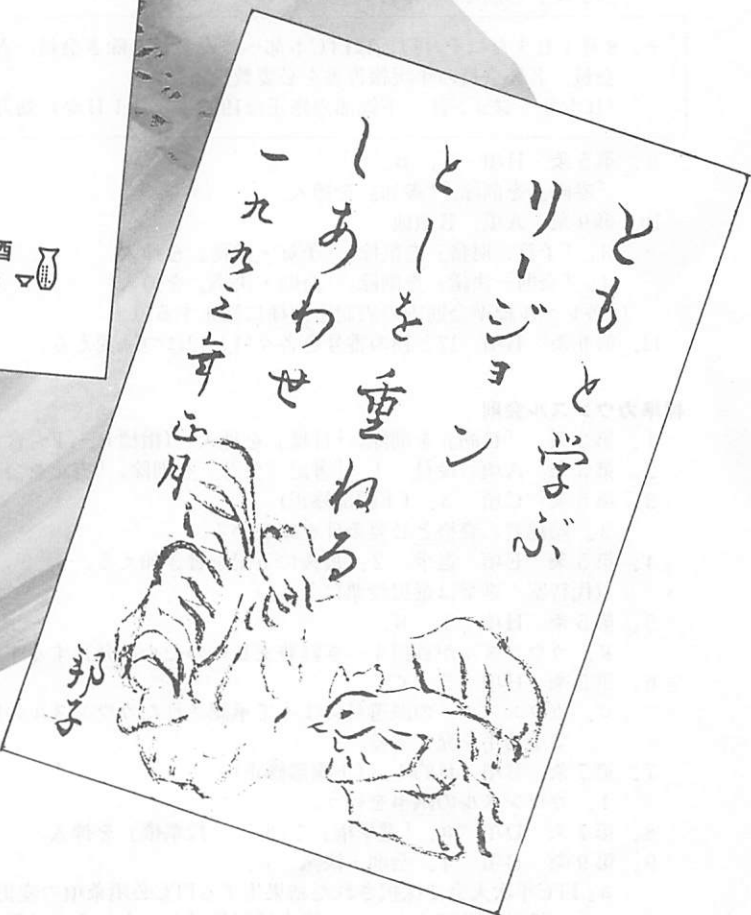 ともと学ぶ
リージョン
としを重ねる
しあわせ
一九九三年 正月
邦子
酒